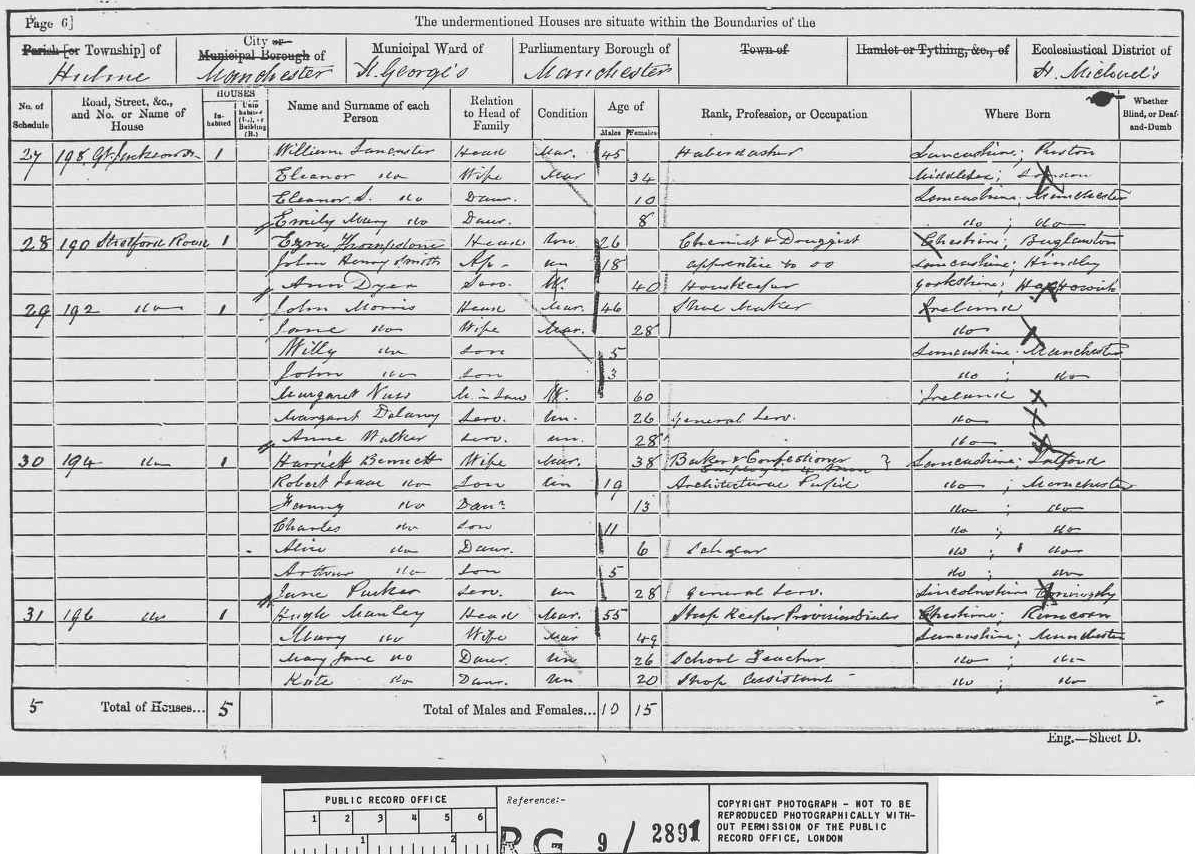 Page 6]
The undermentioned Houses are situate within the Boundaries of the
Parish [or Township] of
City or Municipal Borough of
Municipal Ward of
Parliamentary Borough of
Town of
Hamlet or Tything, &c., of
Ecclesiastical District of
Hulme
Manchester
St. George's
Manchester
St. Michael's
No. of Schedule
Road, Street, &c., and No. or Name of House
HOUSES
In-habited
Unin-habited (U.), or Building (B.)
Name and Surname of each Person
Relation to Head of Family
Condition
Age of
Males
Females
Rank, Profession, or Occupation
Where Born
Whether Blind, or Deaf-and-Dumb
27 198 Gt. Jackson 1 William Lancaster Head Mar. 45 Haberdasher Lancashire; Preston
Eleanor do Wife Mar 34 Middlesex; London
Eleanor S. do Daur. 10 Lancashire Manchester
Emily Mary do Daur. 8 do ; do
28 190 Stretford Road 1 Ezra Thompstone Head Un. 26 Chemist & Druggist Cheshire; Buglawton
John Henry Smith Ap. un 18 apprentice to do Lancashire; Hindley
Ann Dyer Serv. W. 40 Housekeeper Yorkshire;
29 192 do 1 John Morris Head Mar. 46 Shoe Maker Ireland
Jane do Wife Mar. 28 do
Willy do Son 5 Lancashire. Manchester
John do Son 3 do ; do
Margaret M. in Law W. 60 Ireland
Margaret Delaney Serv. Un. 26 General Serv. do
Anne Walker Serv. un. 28 do
30 194 do 1 Harriett Bennett Wife Mar. 38 Baker & Confectioner } Lancashire; Salford
Employing 4 Men
Robert Isaac do Son Un 19 Architectural Pupil do ; Manchester
Fanny do Daur 13 do ; do
Charles do Son 11 do ; do
Alice do Daur. 6 Scholar do ; do
Arthur do Son 5 do ; do
Jane Parker Serv. un 28 General Serv. Lincolnshire
31 196 do 1 Hugh Manley Head Mar. 55 Shop Keeper Provision Dealer Cheshire; Runcorn
Mary do Wife Mar 49 Lancashire; Manchester
Mary Jane do Daur. Un 26 School Teacher do ; do
Kate do Daur. Un 20 Shop Assistant do ; do
5 Total of Houses... 5 Total of Males and Females... 10 15
Eng.—Sheet D.
PUBLIC RECORD OFFICE
1 2 3 4 5 6
1 2
Reference:-
RG 9 / 2891
COPYRIGHT PHOTOGRAPH - NOT TO BE
REPRODUCED PHOTOGRAPHICALLY WITH-
OUT PERMISSION OF THE PUBLIC
RECORD OFFICE, LONDON